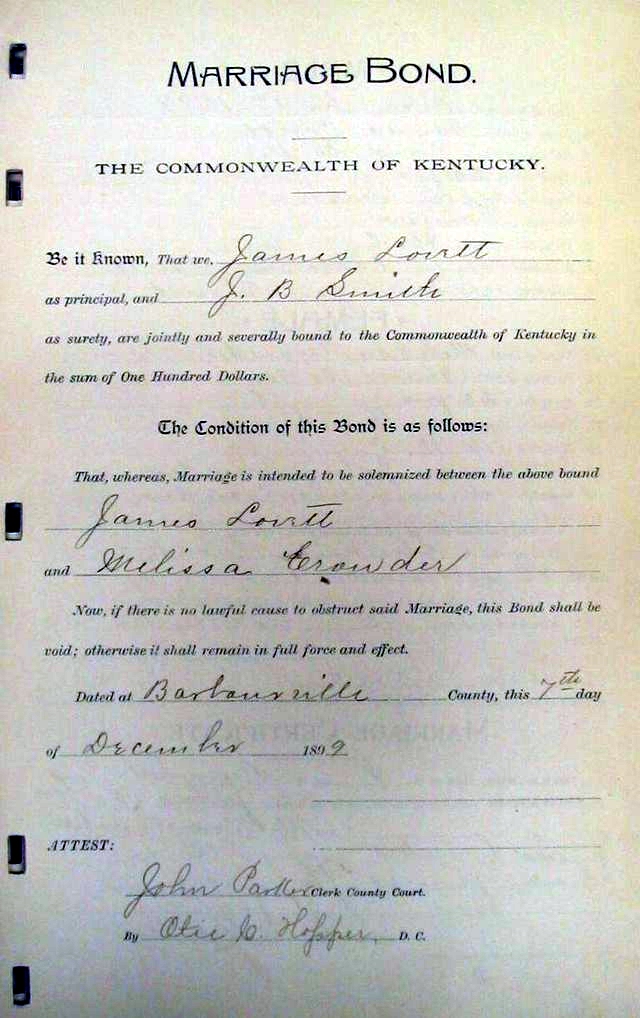 MARRIAGE BOND.
THE COMMONWEALTH OF KENTUCKY.
Be it Known, That we, James Lovett
as principal, and J. B Smith
as surety, are jointly and severally bound to the Commonwealth of Kentucky in
the sum of One Hundred Dollars.
The Condition of this Bond is as follows:
That, whereas, Marriage is intended to be solemnized between the above bound
James Lovett
and Melissa Crowder
Now, if there is no lawful cause to obstruct said Marriage, this Bond shall be
void; otherwise it shall remain in full force and effect.
Dated at Barbourville County, this 7th day
of December 1899
ATTEST:
John Parker Clerk County Court.
By Otis C. Hopper, D. C.